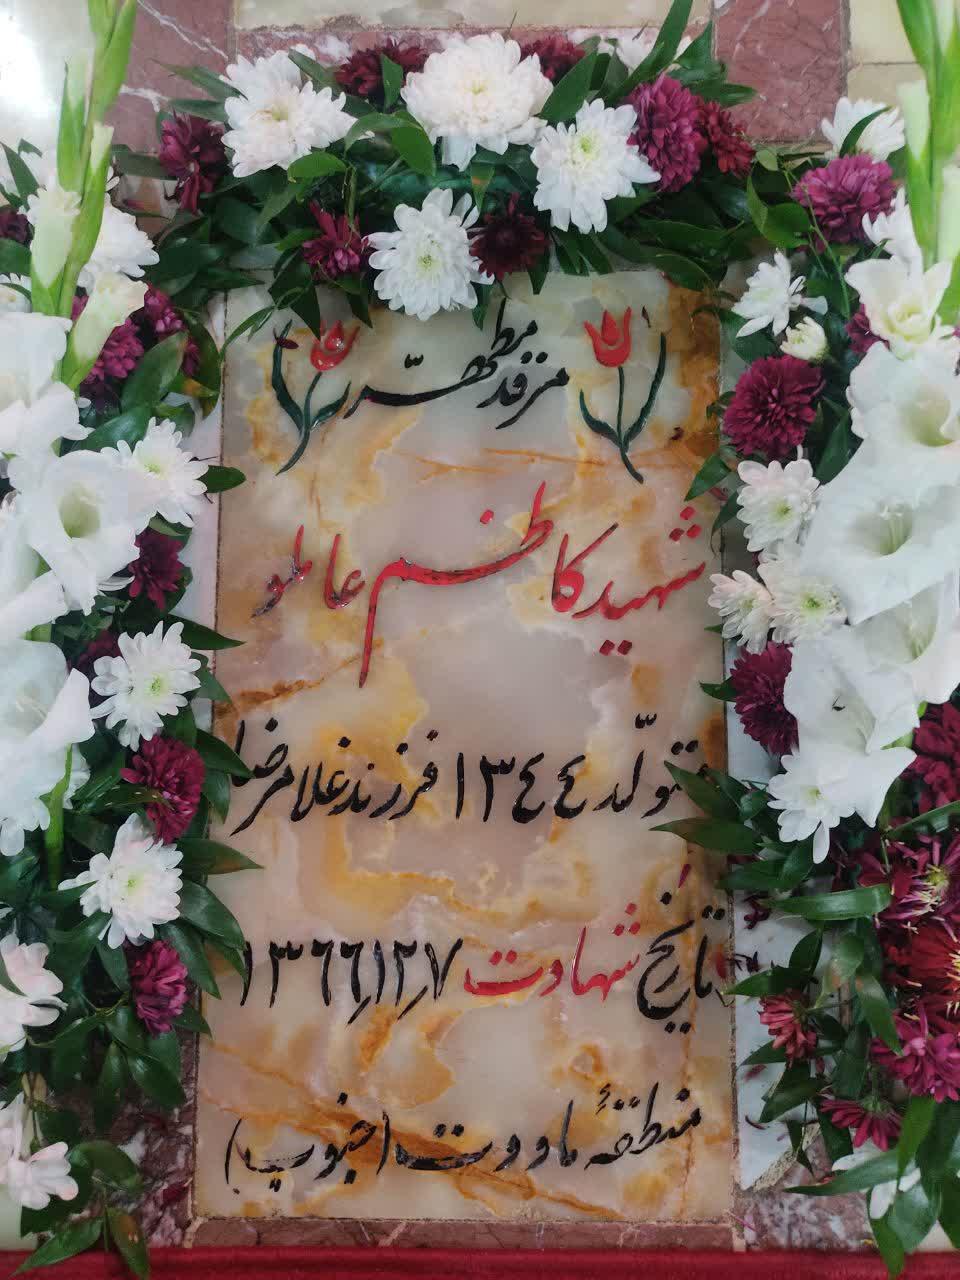 مرقد مطهّر
شهید کاظم عاملو
تولّد ۱۳۴۴ فرزند غلامرضا
تاریخ شهادت ۱۳۶۶٫۱۲٫۷
منطقهٔ ماووت (جنوب)